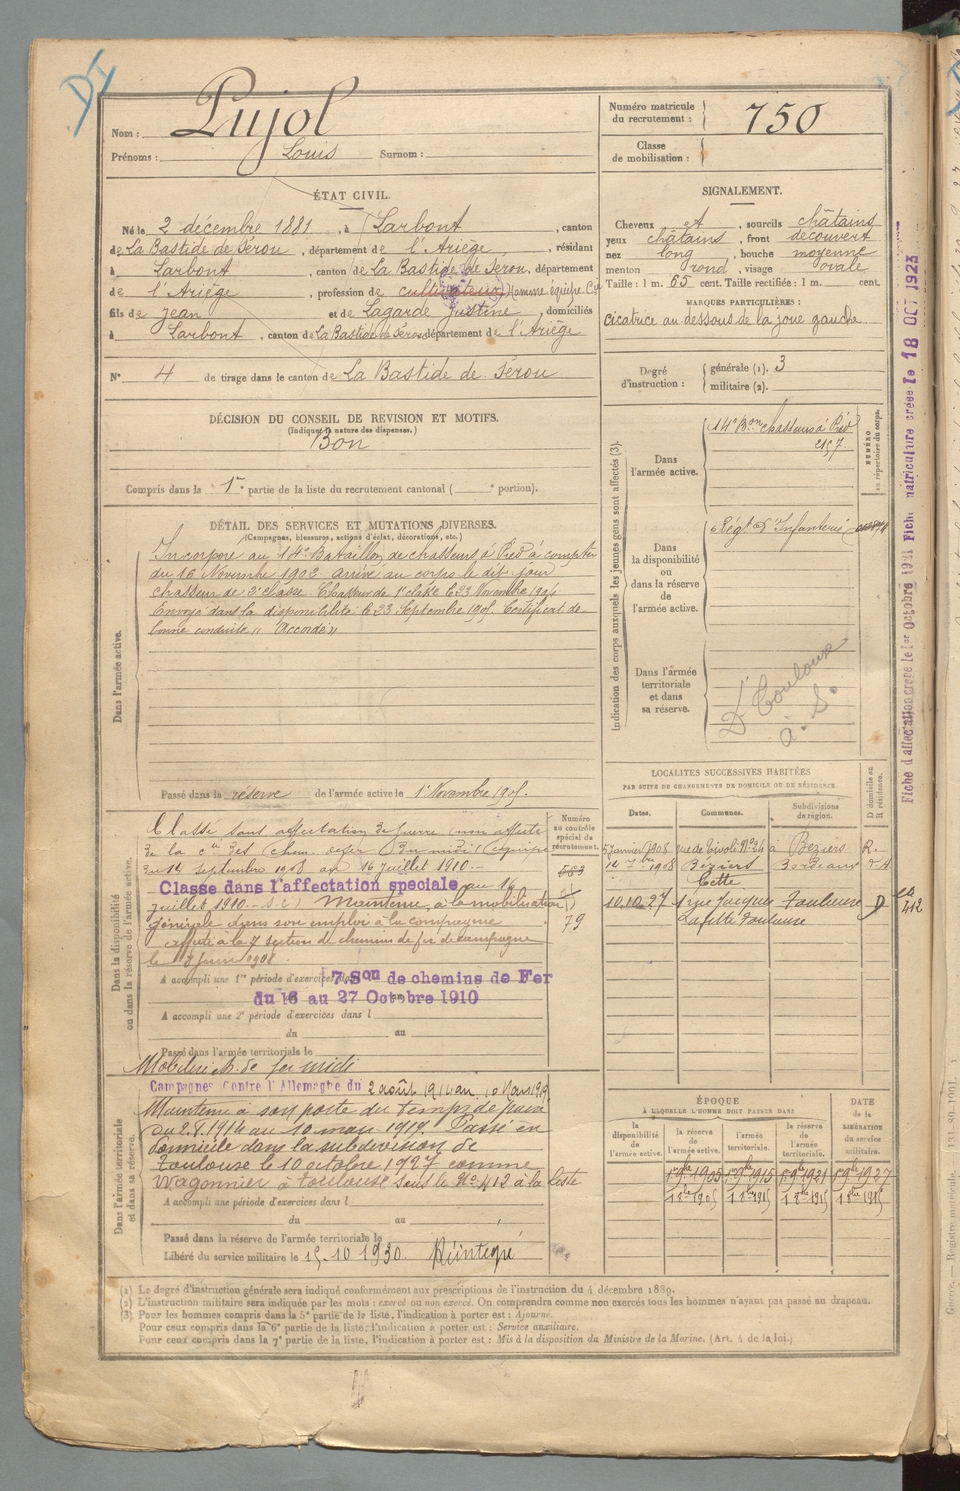 D I
Nom : Pujol
Prénoms : Louis Surnom :
Numéro matricule du recrutement : 750
Classe de mobilisation :
ÉTAT CIVIL.
Né le 2 décembre 1881, à Larbont, canton
de La Bastide de Sérou, département de l'Ariège, résidant
à Larbont, canton de La Bastide de Sérou, département
de l'Ariège, profession de cultivateur, Homme équipe
fils de Jean et de Lagarde Justine domiciliés
à Larbont, canton de La Bastide de Sérou département de l'Ariège
N° 4 de tirage dans le canton de La Bastide de Sérou
SIGNALEMENT.
Cheveux et, sourcils châtains
yeux châtains, front découvert
nez long, bouche moyenne
menton rond, visage ovale
Taille : 1 m. 65 cent. Taille rectifiée : 1 m. cent.
MARQUES PARTICULIÈRES :
cicatrice au dessous de la joue gauche
Degré d'instruction : générale (1). 3
militaire (2).
DÉCISION DU CONSEIL DE REVISION ET MOTIFS.
(Indiquer la nature des dispenses.)
Bon
Compris dans la 1re partie de la liste du recrutement cantonal ( e portion).
DÉTAIL DES SERVICES ET MUTATIONS DIVERSES.
(Campagnes, blessures, actions d'éclat, décorations, etc.)
Dans l'armée active.
Incorporé au 14e Bataillon de chasseurs à Pied à compter
du 16 Novembre 1902 arrivé au corps le dit jour
chasseur de 2e classe. Chasseur de 1e classe le 23 Novembre 1904
Envoyé dans la disponibilité le 23 Septembre 1905 Certificat de
bonne conduite « Accordé »
Passé dans la réserve de l'armée active le 1 Novembre 1905.
Indication des corps auxquels les jeunes gens sont affectés (3).
NUMÉRO au répertoire du corps.
Dans l'armée active.
14e Bon Chasseurs à Pied
2157
Dans la disponibilité ou dans la réserve de l'armée active.
Régt d'Infanterie
Dans l'armée territoriale et dans sa réserve.
Dt Toulouse
à. S.
LOCALITÉS SUCCESSIVES HABITÉES
PAR SUITE DE CHANGEMENTS DE DOMICILE OU DE RÉSIDENCE.
Dates. Communes. Subdivisions de région. D domicile ou R résidence.
5 janvier 1908 rue de Tivoli N° 24 à Béziers R.
1908 Béziers Bordeaux
Cette
10.10.27 1 rue Jacques Toulouse D
Lafitte Toulouse
412
Dans la disponibilité ou dans la réserve de l'armée active.
Numéro au contrôle spécial du recrutement.
583
79
Classé sans affectation de guerre (non affecté)
de la Cie des chem. de fer du midi
du 14 septembre 1908 au 16 juillet 1910.
Classé dans l'affectation spéciale au 16
juillet 1910. Maintenu, à la mobilisation
générale dans son emploi à la compagnie
affecté à la 7 section de chemin de fer de campagne
le 8 juin 1908
A accompli une 1re période d'exercices dans 7. Son de chemins de Fer
du 16 au 27 Octobre 1910
A accompli une 2e période d'exercices dans l
du au
Passé dans l'armée territoriale le
Mobilisé ch. de fer midi
Dans l'armée territoriale et dans sa réserve.
Campagnes Contre l'Allemagne du 2 août 1914 au 10 Mars 1919
Maintenu à son poste du temps de paix
du 2.8.1914 au 10 mars 1919. Passé en
domicile dans la subdivision de
Toulouse le 10 octobre 1927 comme
wagonnier à Toulouse sous le No 412 à la liste
A accompli une période d'exercices dans l
du au
Passé dans la réserve de l'armée territoriale le
Libéré du service militaire le 15-10 1930. Réintégré
ÉPOQUE
À LAQUELLE L'HOMME DOIT PASSER DANS
la disponibilité de l'armée active. la réserve de l'armée active. l'armée territoriale. la réserve de l'armée territoriale.
DATE de la LIBÉRATION du service militaire.
1 9bre 1905 1 9bre 1915 1 9bre 1921 1 9bre 1927
(1) Le degré d'instruction générale sera indiqué conformément aux prescriptions de l'instruction du 4 décembre 1889.
(2) L'instruction militaire sera indiquée par les mots : exercé ou non exercé. On comprendra comme non exercés tous les hommes n'ayant pas passé au drapeau.
(3) Pour les hommes compris dans la 5e partie de la liste, l'indication à porter est : Ajourné.
Pour ceux compris dans la 6e partie de la liste, l'indication à porter est : Service auxiliaire.
Pour ceux compris dans la 7e partie de la liste, l'indication à porter est : Mis à la disposition du Ministre de la Marine. (Art. 4 de la loi.)
Fiche d'affectation créée le 1er Octobre 1921 Fiche matriculaire créée le 18 OCT 1923
Guerre. — Registre matricule. 131-89-1901.